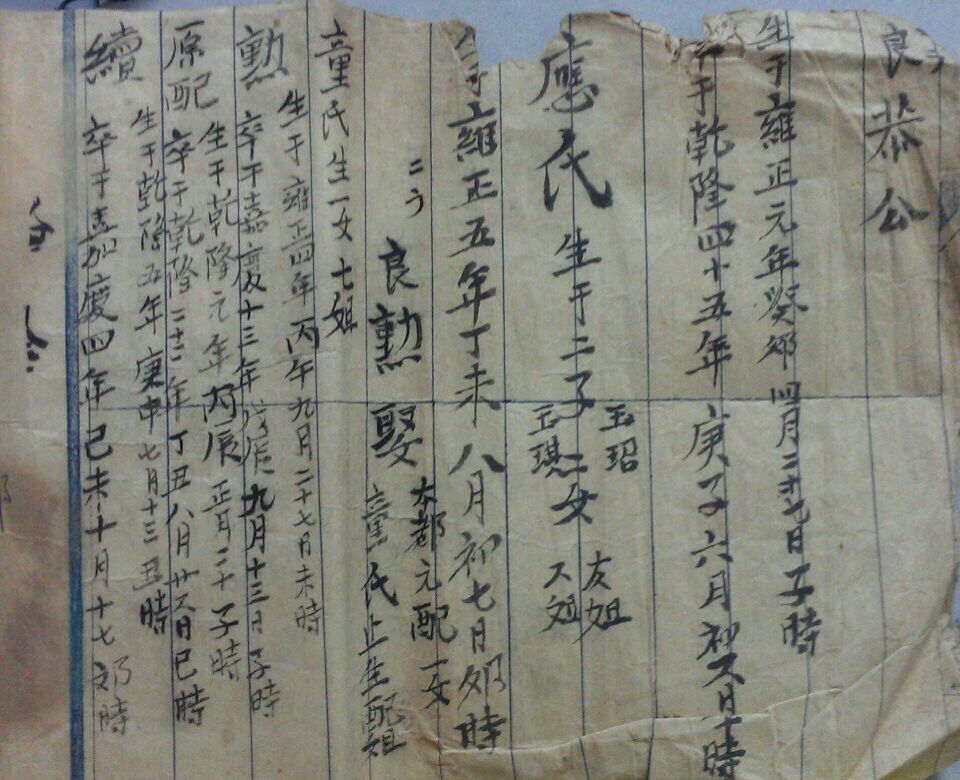 良恭公
生于雍正元年癸卯四月二十七日子時
卒于乾隆四十五年庚子六月初又日時
玉玿
玉琪
應氏生于二子二女
友姐
又姐
雍正五年丁未八月初七月卯時
二
良勲娶
本都元配一女
童氏止生配姐
童氏生一女七姐
生于雍正四年丙午九月二十七月未時
勲卒于嘉慶十三年戊辰九月十三日子時
原配
生于乾隆元年丙辰正月二十子時
卒于乾隆二十二年丁丑八月廿又日巳時
生于乾隆五年庚申七月十三丑時
續卒于嘉慶四年己未十月十七卯時